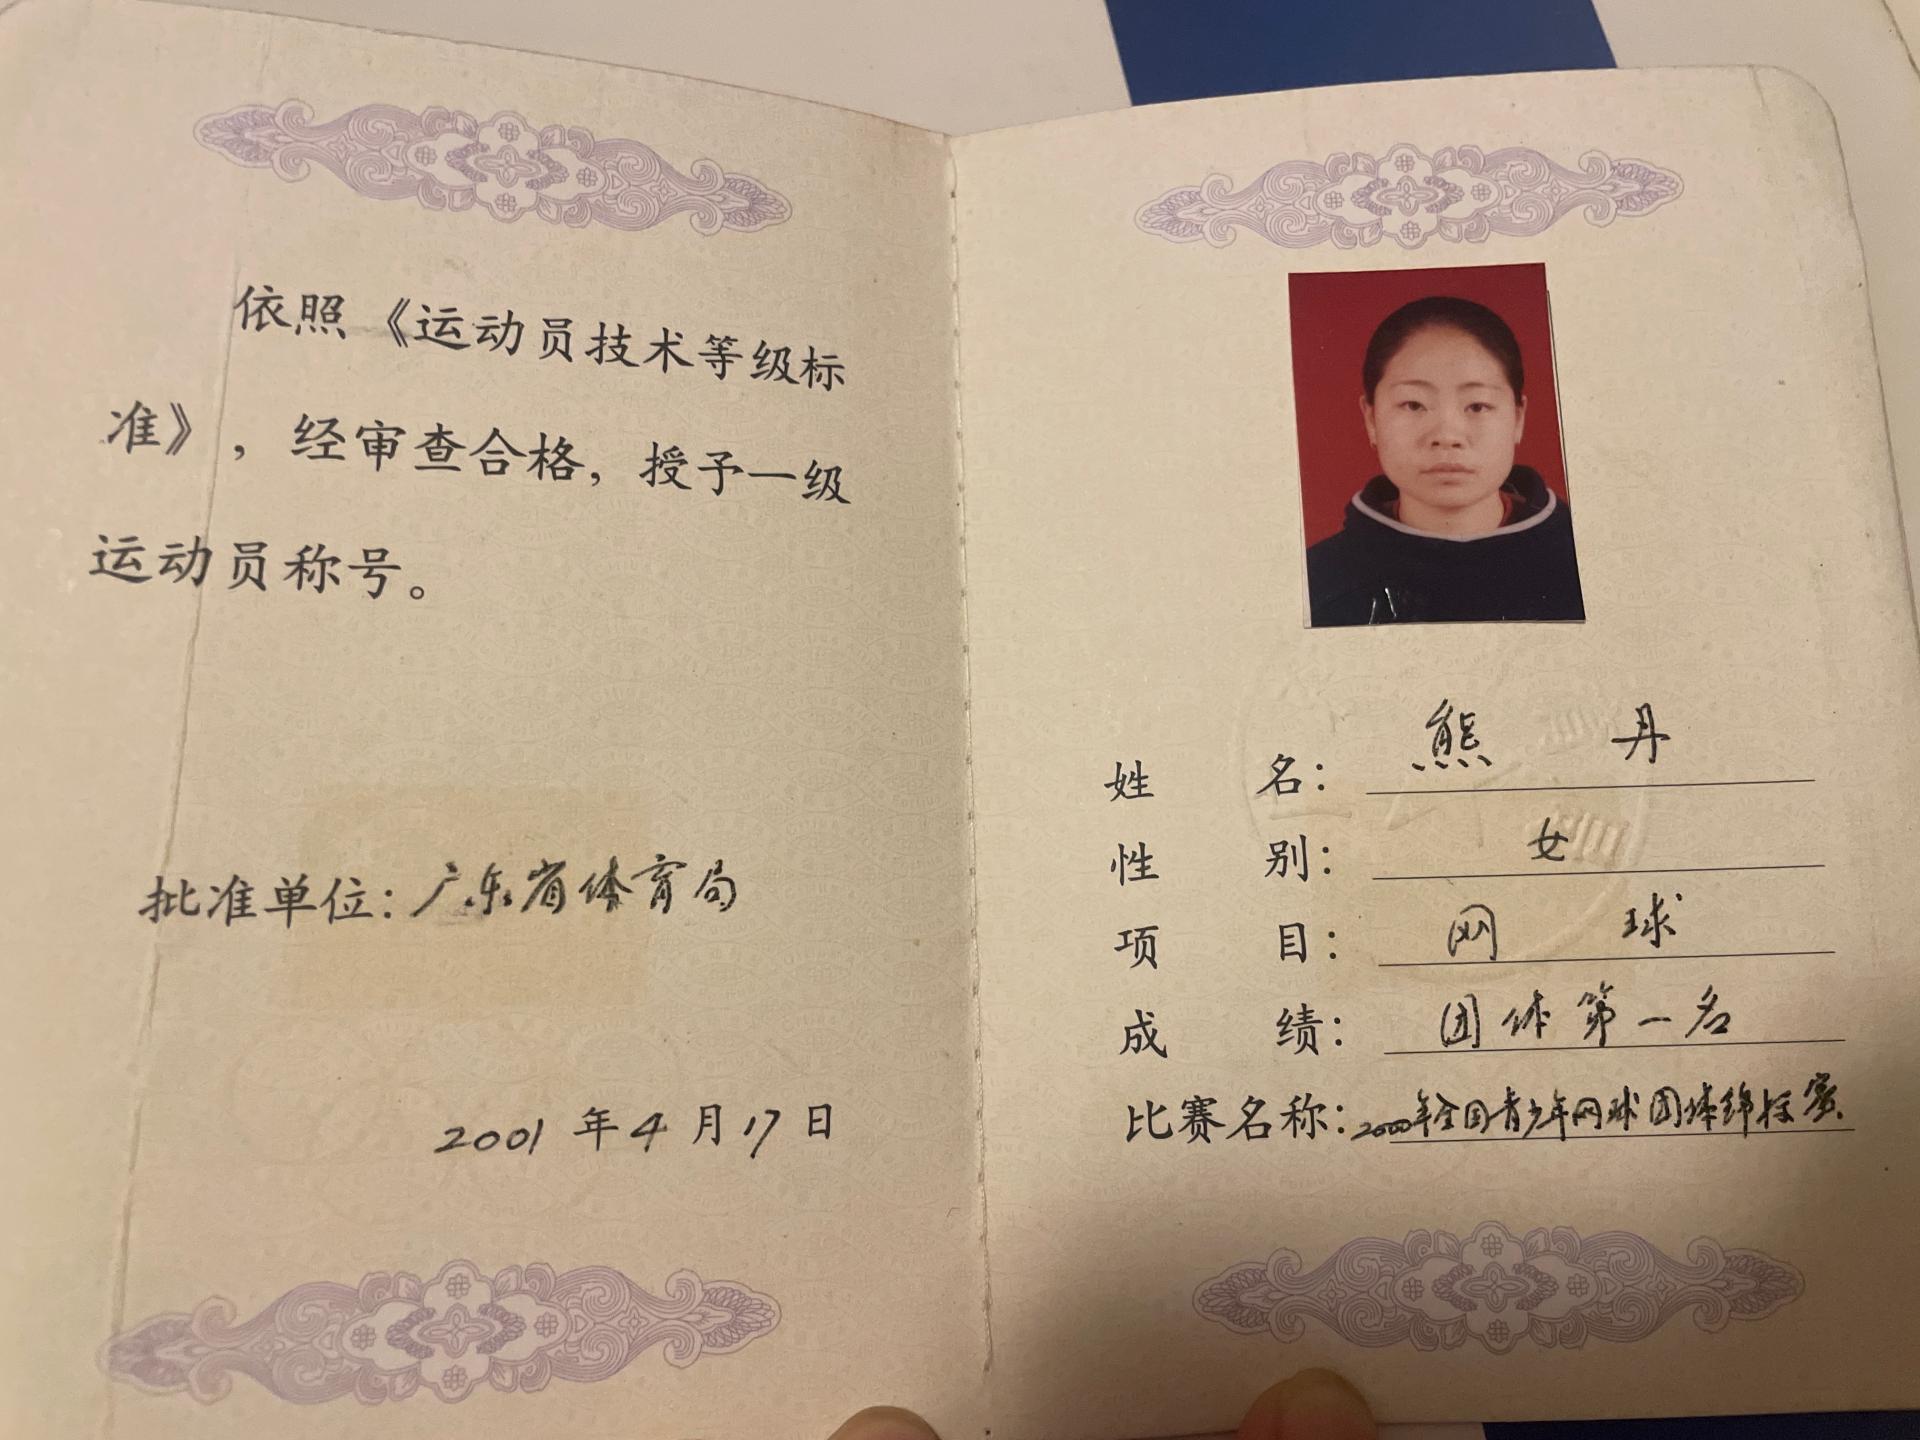 依照《运动员技术等级标
准》，经审查合格，授予一级
运动员称号。
批准单位：广东省体育局
2001 年 4 月 17 日
姓 名： 熊 丹
性 别： 女
项 目： 网 球
成 绩： 团体第一名
比赛名称：2000年全国青少年网球团体锦标赛